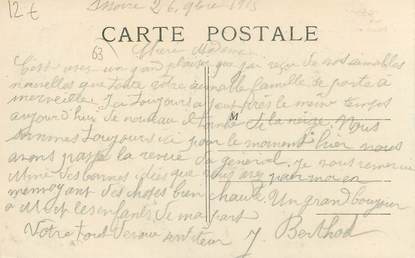 12 €
Issoire 26 9bre 1915
CARTE POSTALE
63
Chère Madame
C'est avec un grand plaisir que j'ai reçu de vos aimables
nouvelles que toute votre aimable famille se porte à
merveille. J'ai toujours à peu près le même temps
aujourd'hui de nouveau il tombe de la neige. Nous
M
sommes toujours ici pour le moment hier nous
avons passé la revue du général. Je vous remercie
Mme des bonnes idées que vous avez pour moi en
m'envoyant des choses bien chaude. Un grand bonjour
à M. et les enfants de ma part
Votre tout dévoué serviteur J Berthod